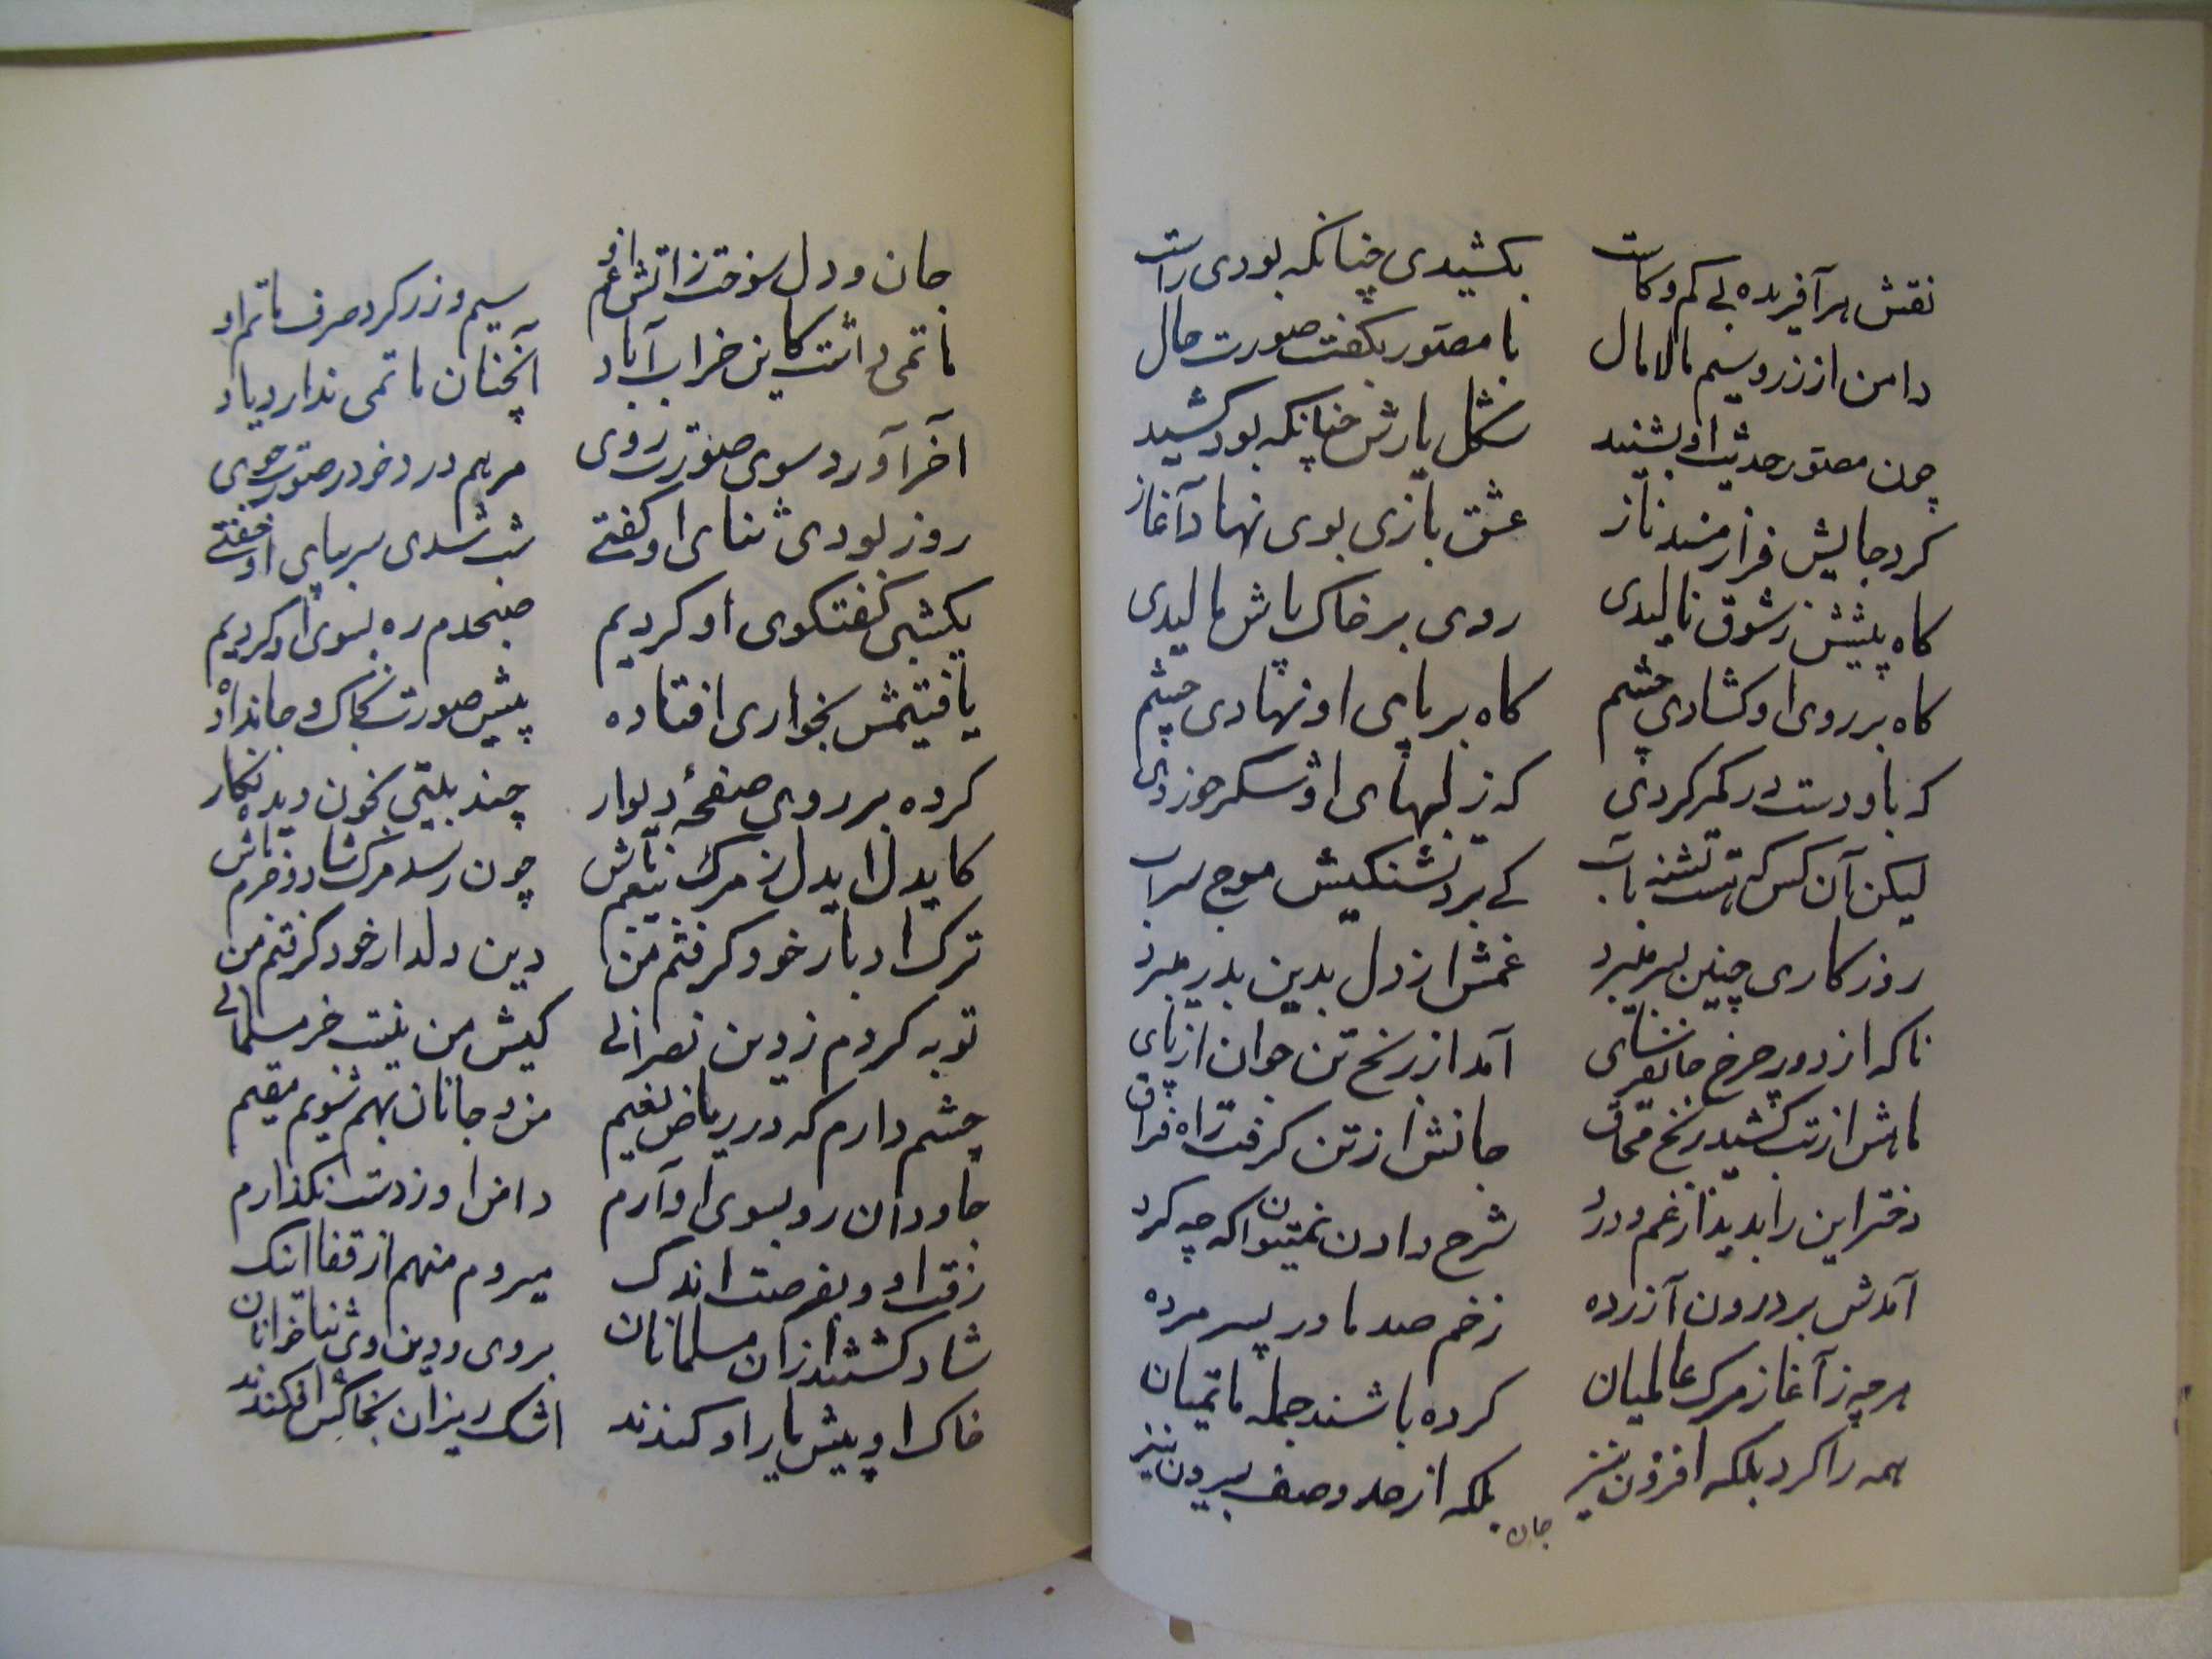 نقش هر آفریده بی کم و کاست بکشیدی چنانکه بودی راست
دامن از زر و سیم مالامال با مصور بگفت صورت حال
چون مصور حدیث او بشنید شکل یارش چنانکه بود کشید
کرد جایش فراز مسند ناز عشق بازی بوی نهاد آغاز
کاه پیشش ز شوق نالیدی روی بر خاک پاش مالیدی
کاه بر روی او کشادی چشم کاه بر پای او نهادی چشم
که باو دست در کمر کردی که ز لبهای او شکر خوردی
لیکن آن کس که هست تشنه بآب کی برد تشنکیش موج سراب
روزکاری چنین بسر میبرد غمش از دل بدین بدر میبرد
ناکه از دور چرخ جانفرسای آمد از رنج تن جوان از پای
ماهش از تب کشید رنج محاق جانش از تن کرفت راه فراق
دختر این را بدید از غم و درد شرح دادن نمیتوان که چه کرد
آمدش بر درون آزرده زخم صد مادر پسر مرده
هر چه ز آغاز مرک عالمیان کرده باشند جمله ماتمیان
همه را کرد بلکه افزون نیز بلکه از حد وصف بیرون نیز
جان
جان و دل سوخت ز آتش غم او سیم و زر کرد صرف ماتم او
ماتمی داشت کاین خراب آباد آنچنان ماتمی ندارد یاد
آخر آورد سوی صورت روی مرهم درد خود ز صورت جوی
روز بودی ثنای او کفتی شب شدی سر بپای او خفتی
یکشبی کفتکوی او کردیم صبحدم ره بسوی او کردیم
یافتیمش بخواری افتاده پیش صورت بخاک و جان داده
کرده بر روی صفحهٔ دیوار چند بیتی بخون دیده نکار
کایدل ایدل ز مرک بیغم باش چون رسد مرک شاد و خرم باش
ترک ادبار خود کرفتم من دین دلدار خود کرفتم من
توبه کردم ز دین نصرانی کیش من نیست جز مسلمانی
چشم دارم که در ریاض نعیم من و جانان بهم شویم مقیم
جاودان رو بسوی او آرم دامن او ز دست نکذارم
رفت او و بفرصت اندک میروم منهم از قفا اینک
شاد کشتند از آن مسلمانان بروی و دین وی ثنا خوانان
خاک او پیش یار او کندند اشک ریزان بخاکش افکندند